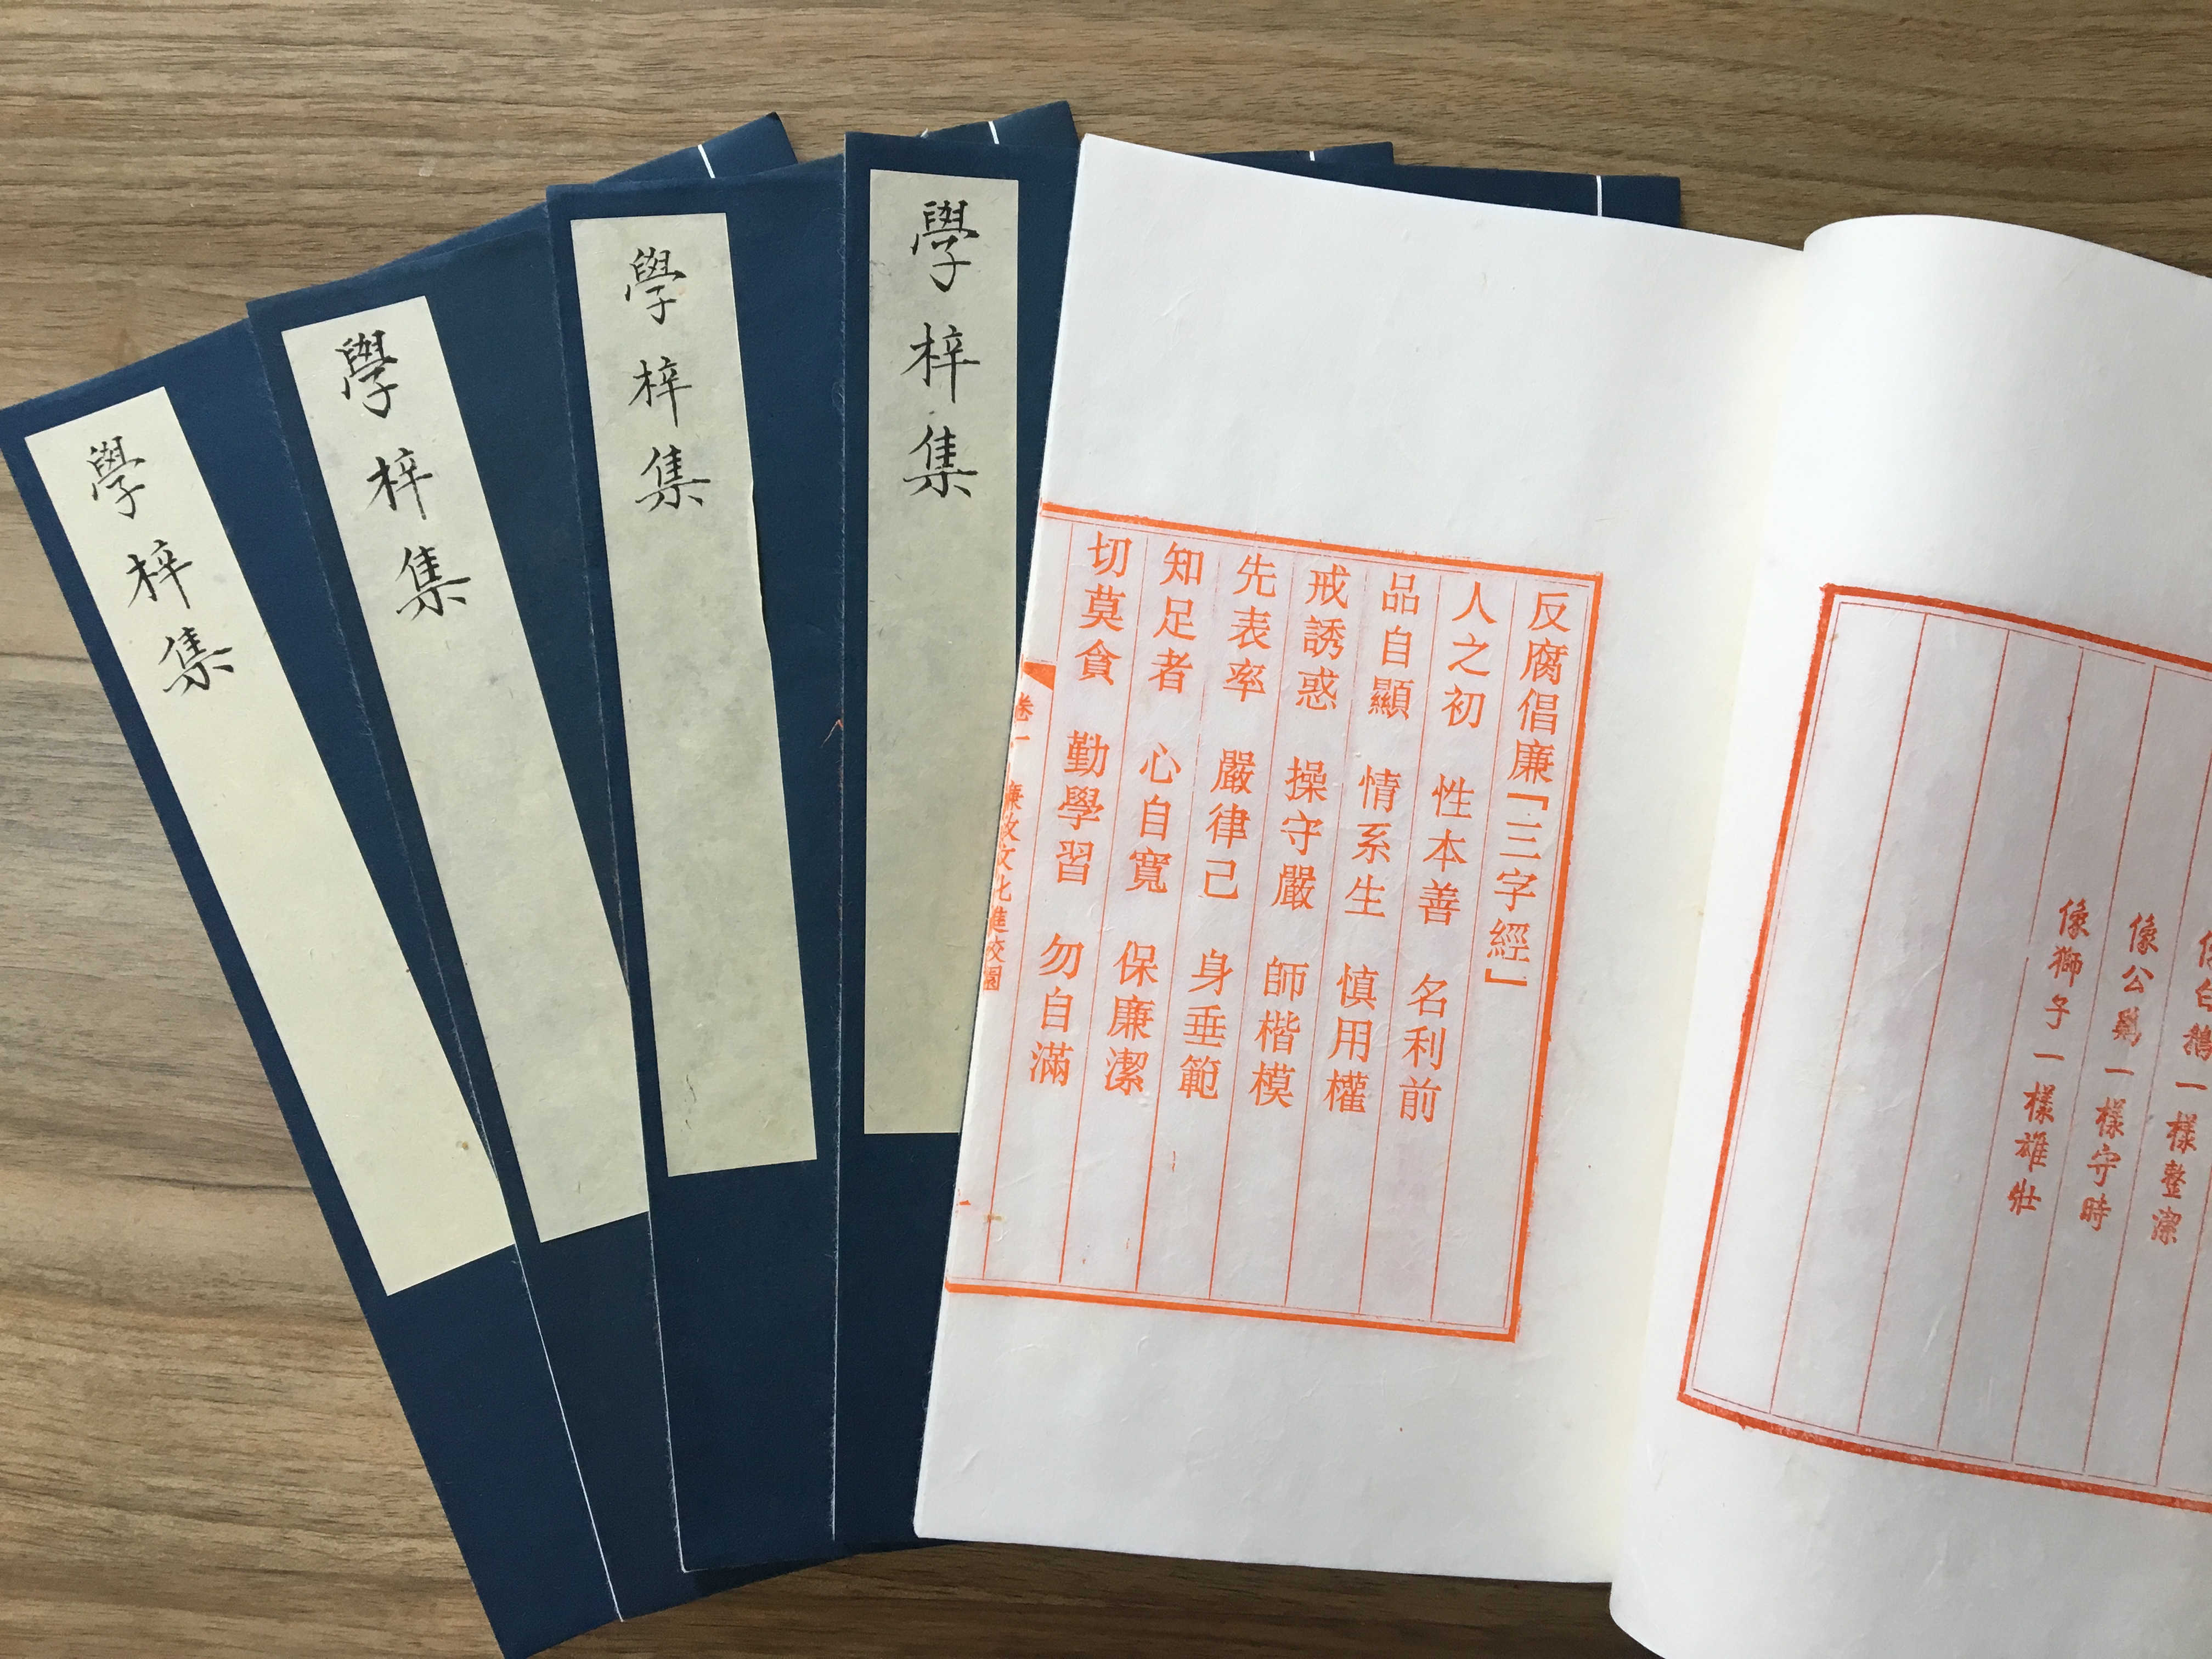 學梓集
學梓集
學梓集
學梓集
反腐倡廉「三字經」
人之初　性本善　名利前
品自顯　情系生　慎用權
戒誘惑　操守嚴　師楷模
先表率　嚴律己　身垂範
知足者　心自寬　保廉潔
切莫貪　勤學習　勿自滿
卷一
廉政文化進校園
一
像白鵝一樣整潔
像公鷄一樣守時
像獅子一樣雄壯